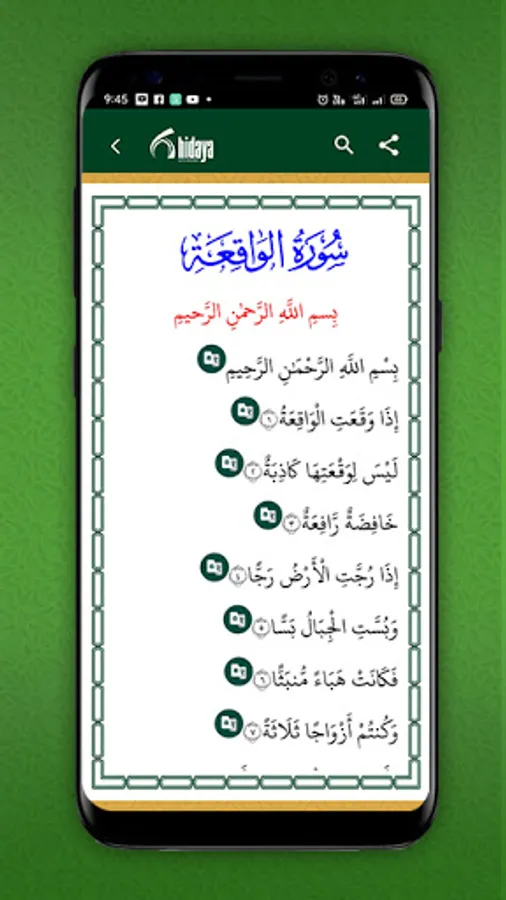 9:45
hidaya
سُورَةُ الوَاقِعَةِ
بِسمِ اللَّهِ الرَّحمٰنِ الرَّحيمِ
بِسْمِ اللَّهِ الرَّحْمَٰنِ الرَّحِيمِ
إِذَا وَقَعَتِ الْوَاقِعَةُ ﴿١﴾
لَيْسَ لِوَقْعَتِهَا كَاذِبَةٌ ﴿٢﴾
خَافِضَةٌ رَّافِعَةٌ ﴿٣﴾
إِذَا رُجَّتِ الْأَرْضُ رَجًّا ﴿٤﴾
وَبُسَّتِ الْجِبَالُ بَسًّا ﴿٥﴾
فَكَانَتْ هَبَاءً مُّنبَثًّا ﴿٦﴾
وَكُنتُمْ أَزْوَاجًا ثَلَاثَةً ﴿٧﴾